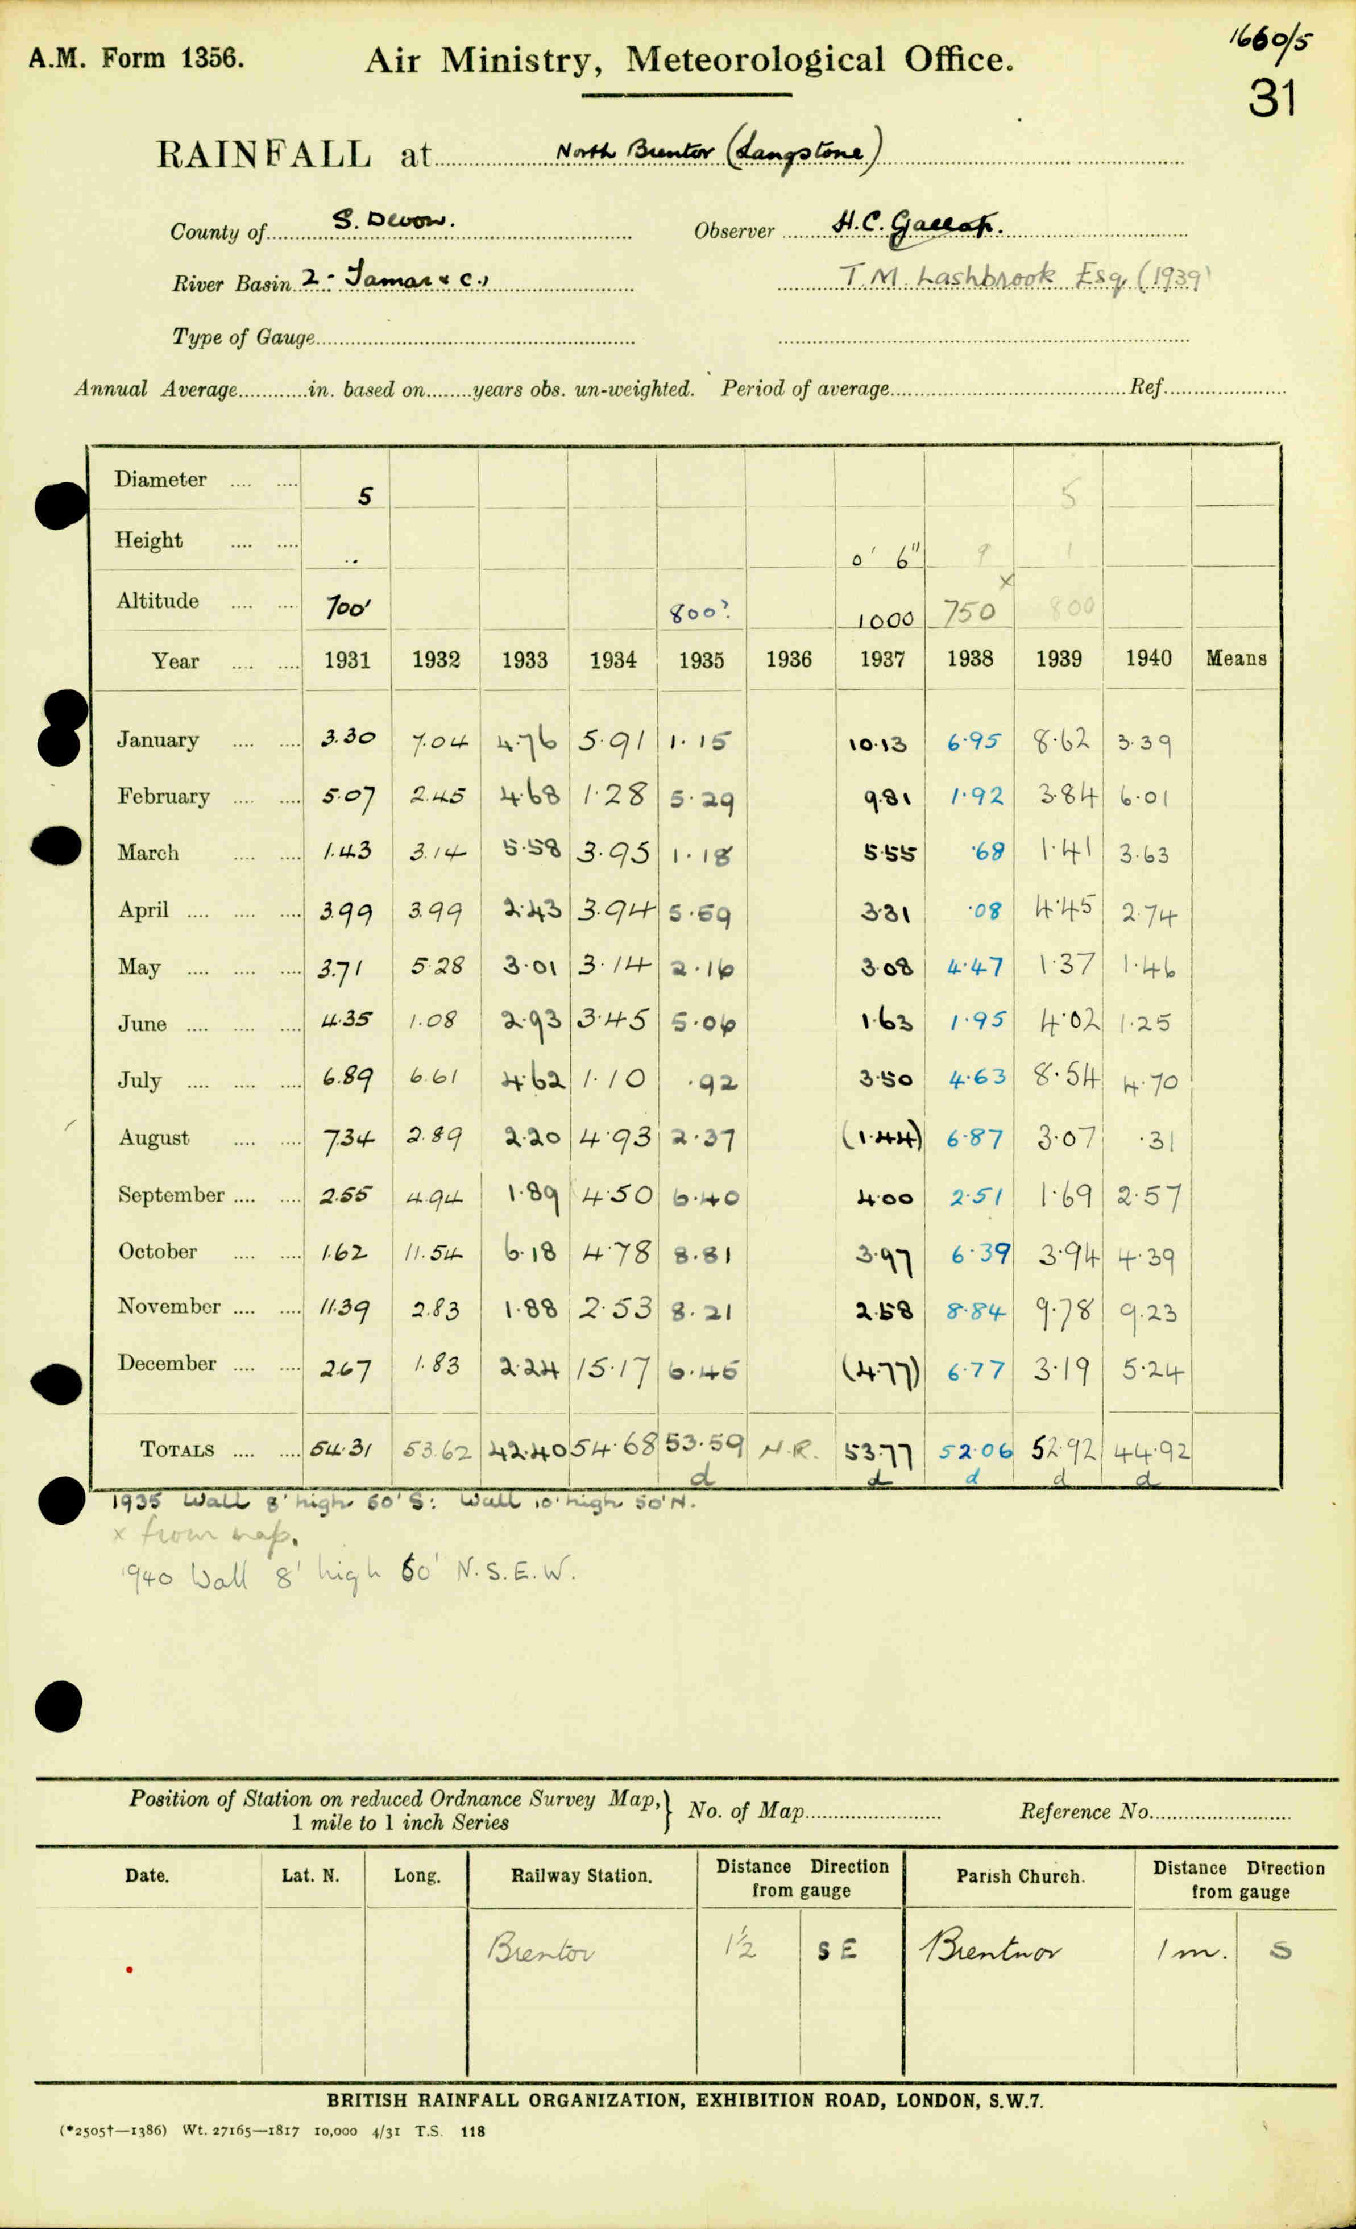 1660/5
A.M. Form 1356. Air Ministry, Meteorological Office.
31
RAINFALL at North Brentor (Langstone)
County of S. Devon. Observer H.C. Gallop.
River Basin 2 - Tamar &c., T.M. Lashbrook Esq. (1939)
Type of Gauge
Annual Average in. based on years obs. un-weighted. Period of average Ref.
Diameter 5 5
Height .. 0' 6" 9 1
Altitude 700' 800? 1000 750 x 800
Year 1931 1932 1933 1934 1935 1936 1937 1938 1939 1940 Means
January 3.30 7.04 4.76 5.91 1.15 10.13 6.95 8.62 3.39
February 5.07 2.45 4.68 1.28 5.29 9.81 1.92 3.84 6.01
March 1.43 3.14 5.58 3.95 1.18 5.55 .68 1.41 3.63
April 3.99 3.99 2.43 3.94 5.59 3.31 .08 4.45 2.74
May 3.71 5.28 3.01 3.14 2.16 3.08 4.47 1.37 1.46
June 4.35 1.08 2.93 3.45 5.06 1.63 1.95 4.02 1.25
July 6.89 6.61 4.62 1.10 .92 3.50 4.63 8.54 4.70
August 7.34 2.89 2.20 4.93 2.37 (1.44) 6.87 3.07 .31
September 2.55 4.94 1.89 4.50 6.40 4.00 2.51 1.69 2.57
October 1.62 11.54 6.18 4.78 8.81 3.97 6.39 3.94 4.39
November 11.39 2.83 1.88 2.53 8.21 2.58 8.84 9.78 9.23
December 2.67 1.83 2.24 15.17 6.45 (4.77) 6.77 3.19 5.24
TOTALS 54.31 53.62 42.40 54.68 53.59 N.R. 53.77 52.06 52.92 44.92
d d d d d
1935 Wall 8' high 60' S: Wall 10' high 50' N.
x from map.
1940 Wall 8' high 60' N.S.E.W.
Position of Station on reduced Ordnance Survey Map, 1 mile to 1 inch Series } No. of Map Reference No.
Date. Lat. N. Long. Railway Station. Distance Direction from gauge Parish Church. Distance Direction from gauge
Brentor 1½ S E Brentnor 1 m. S
BRITISH RAINFALL ORGANIZATION, EXHIBITION ROAD, LONDON, S.W.7.
(*2505†—1386) Wt. 27165—1817 10,000 4/31 T.S. 118